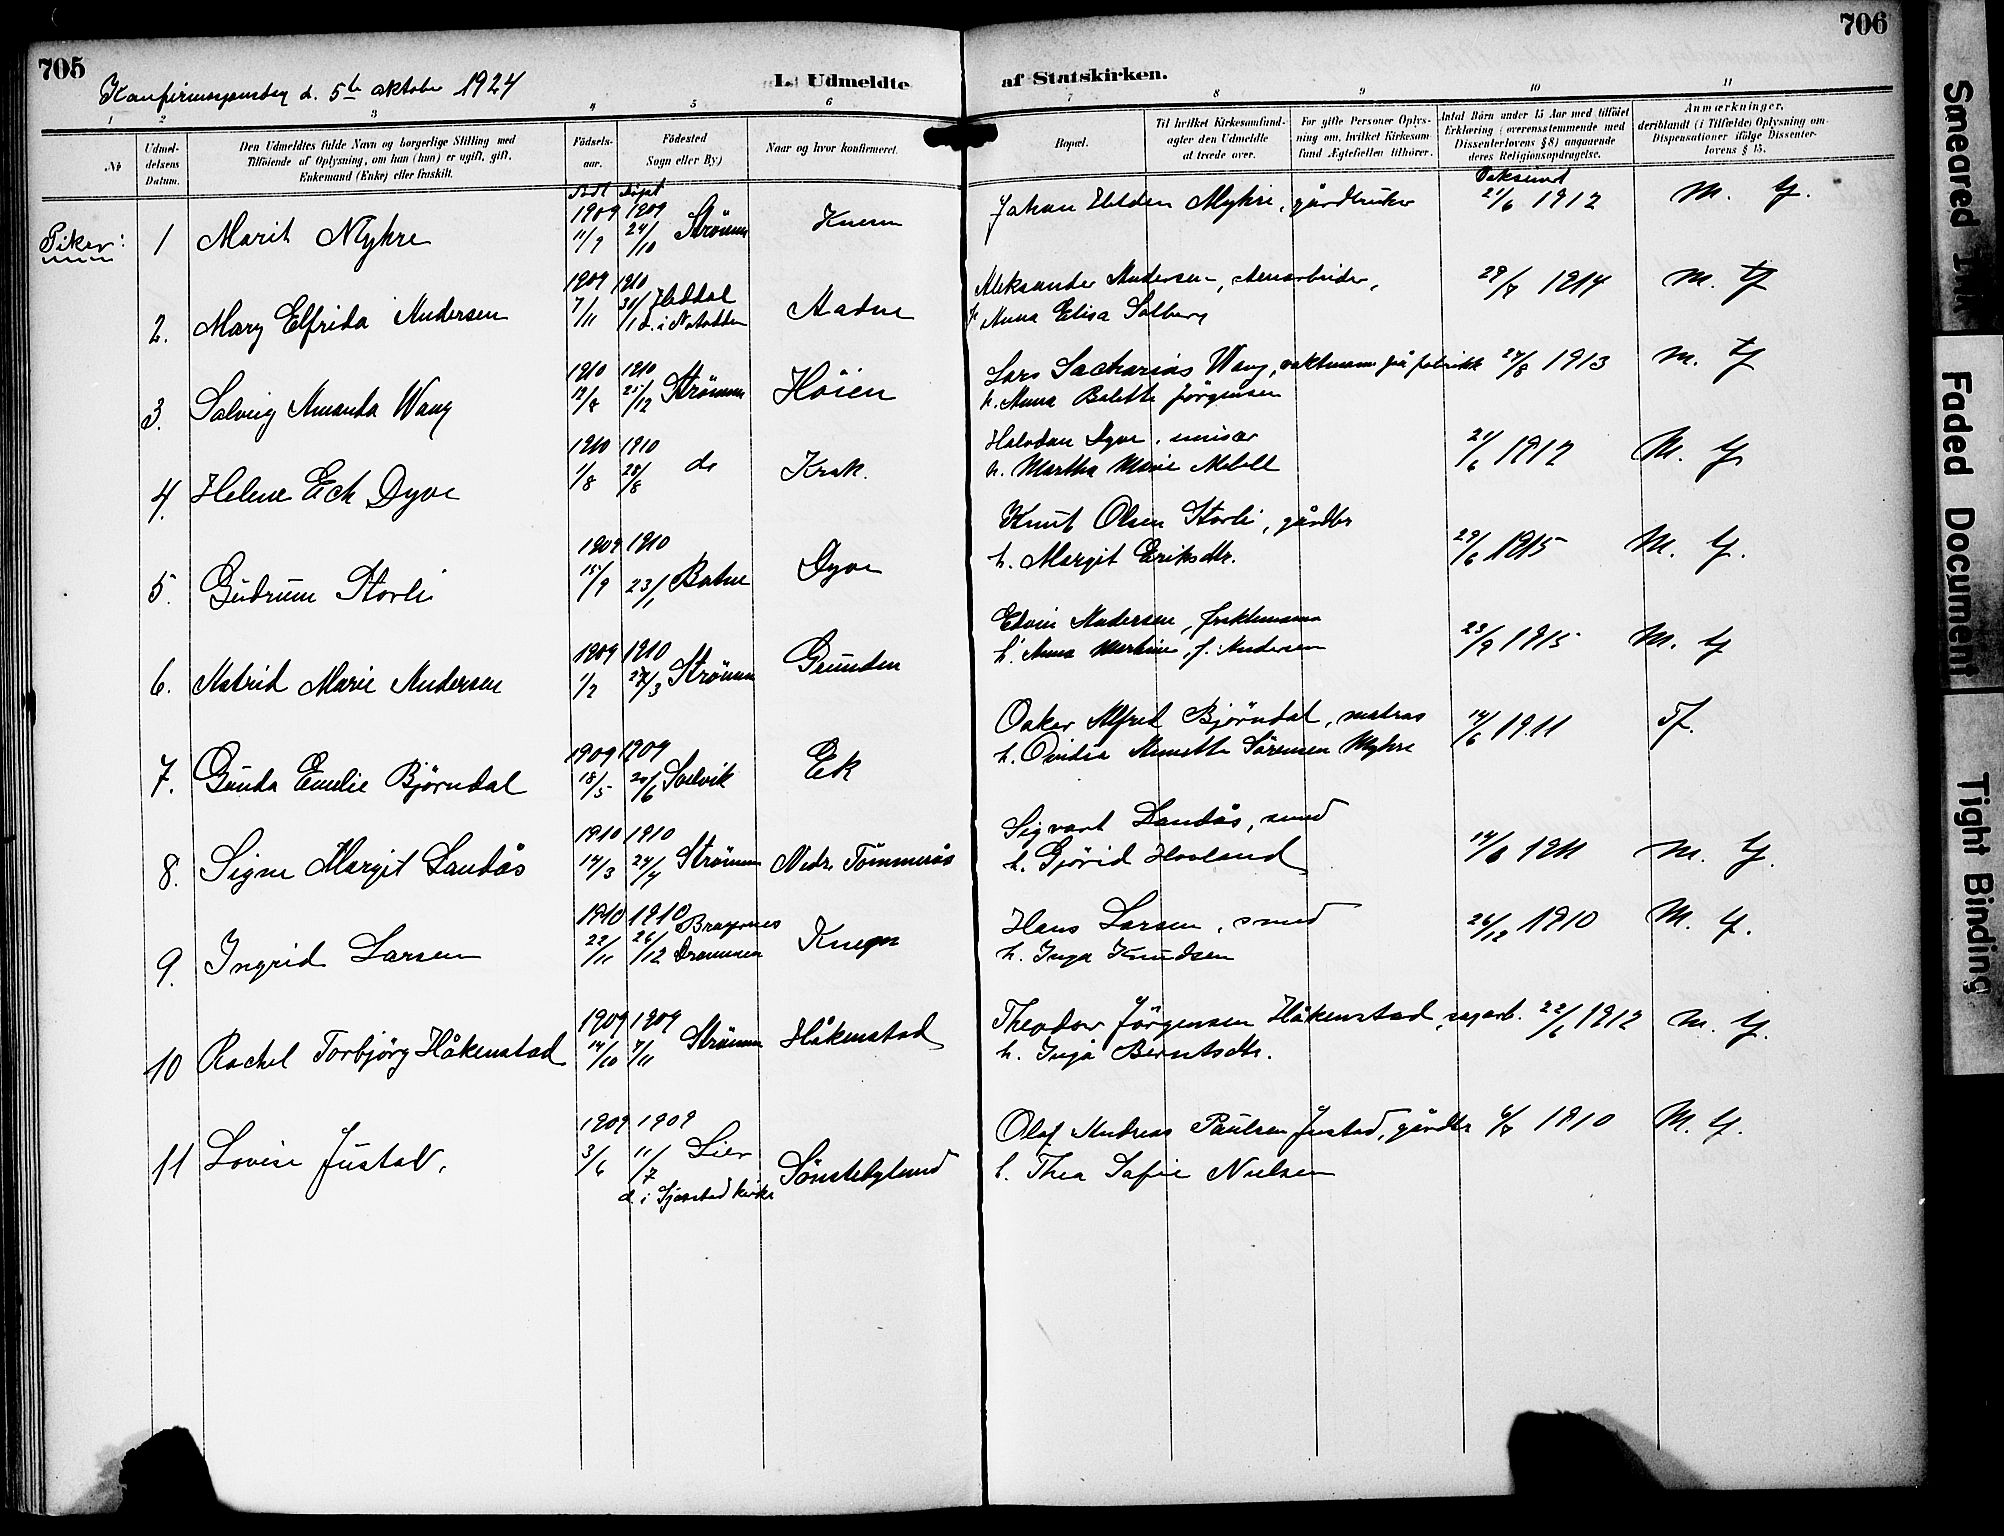 705
706
d. 5te oktober 1924
L. Udmeldte af Statskirken.
1 2 3 4 5 6 7 8 9 10 11
№
Udmel-
delsens
Datum.
Den Udmeldtes fulde Navn og borgerlige Stilling med
Tilföiende af Oplysning, om han (hun) er ugift, gift,
Enkemand (Enke) eller fraskilt.
Födsels-
aar.
Födested
Sogn eller By)
Naar og hvor konfirmeret.
Bopæl.
Til hvilket Kirkesamfund-
agter den Udmeldte
at træde over.
For gifte Personer Oplys-
ning om, hvilket Kirkesam
fund Ægtefællen tilhörer.
Antal Börn under 15 Aar med tilföiet
Erklæring (overensstemmende med
Dissenterlovens §8) angaaende
deres Religionsopdragelse.
Anmærkninger,
deriblandt (i Tilfælde) Oplysning om
Dispensationer ifölge Dissenter-
lovens § 15.
födt döpt
Vaksinert
Piker: 1 Marit Myhre 1909 11/9 1909 24/10 Strömm Knem Johan Myhre, gårdbruker 21/6 1912 M. G.
2. Mary Elfrida Andersen 1909 7/11 1910 30/1 Heddal d. i Notodden Aadne Aleksander Andersen, stenarbeider, 29/7 1914 M. G
h. Anna Elisa Solberg
3. Solveig Amanda Wang 1910 12/8 1910 25/12 Strömm Höien Lars Sacharias Wang, vaktmann på fabrikk 24/8 1913 M. G
h. Anna Bolette Jörgensen
4. Helene Eck Dyve 1910 1/8 1910 28/8 do Krok. Halvdan Dyve, 21/6 1912 M. G
h. Martha Marie Mebell
5. Gudrun Storli 1909 15/9 1910 23/1 Botne Dyve Knut Olsen Storli, gårdbr 29/6 1915 M. G.
h. Margit Eriksdtr.
6. Astrid Marie Andersen 1909 1/2 1910 27/3 Strömm Grunden Edvin Andersen, fraktemann 23/9 1915 M. G
h. Anna Martine, f. Andersen
7. Gunda Emelie Björndal 1909 18/5 1909 20/6 Svelvik Ek Oskar Alfred Björndal, matros 14/6 1911 Tf.
h. Ovidia Annette Sörensen Myhre
8. Signe Margit Landås 1910 14/3 1910 24/4 Strömm Nedr. Tömmerås Sigvart Landås, smed 14/6 1911 M. G.
h. Gjörid Hovland
9. Ingrid Larsen 1910 22/11 1910 26/12 Bragernes Drammen Hans Larsen, smed 26/12 1910 M. G.
h. Inga Knudsen
10 Rachel Torbjörg Håkenstad 1909 14/10 1909 7/11 Strömm Håkenstad Theodor Jörgensen Håkenstad, sagarb. 22/6 1912 M. G.
h. Inga Berntsdtr.
11 Lovise Justad. 1909 3/6 1909 11/7 Lier d. i Sjåstad kirke Sönstebylund Olaf Andreas Paulsen Justad, gårdbr 6/7 1910 M. G.
h. Thea Sofie Nielsen
Smeared Ink
Faded Document
Tight Binding